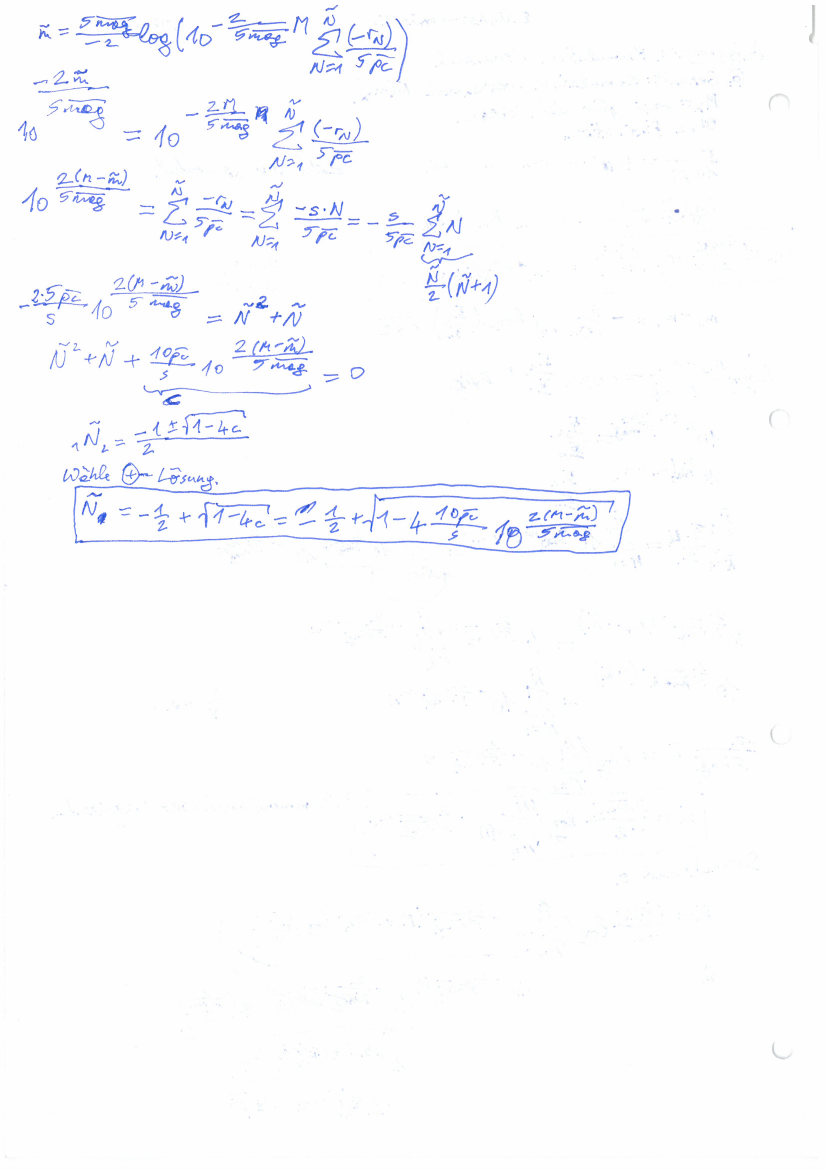 m̃ = 5mag/-2 log(10^(-2/5mag M) Σ_{N=1}^{Ñ} (-r_N)/5pc)
10^(-2m̃/5mag) = 10^(-2M/5mag) Σ_{N=1}^{Ñ} (-r_N)/5pc
10^(2(M-m̃)/5mag) = Σ_{N=1}^{Ñ} -r_N/5pc = Σ_{N=1}^{Ñ} -s·N/5pc = -s/5pc Σ_{N=1}^{Ñ} N
Ñ/2 (Ñ+1)
-2·5pc/s 10^(2(M-m̃)/5mag) = Ñ² + Ñ
Ñ² + Ñ + 10pc/s 10^(2(M-m̃)/5mag) = 0
c
₁Ñ₂ = -1±√(1-4c)/2
Wähle ⊕-Lösung.
Ñ = -1/2 + √(1-4c) = -1/2 + √(1-4 10pc/s 10^(2(M-m̃)/5mag))